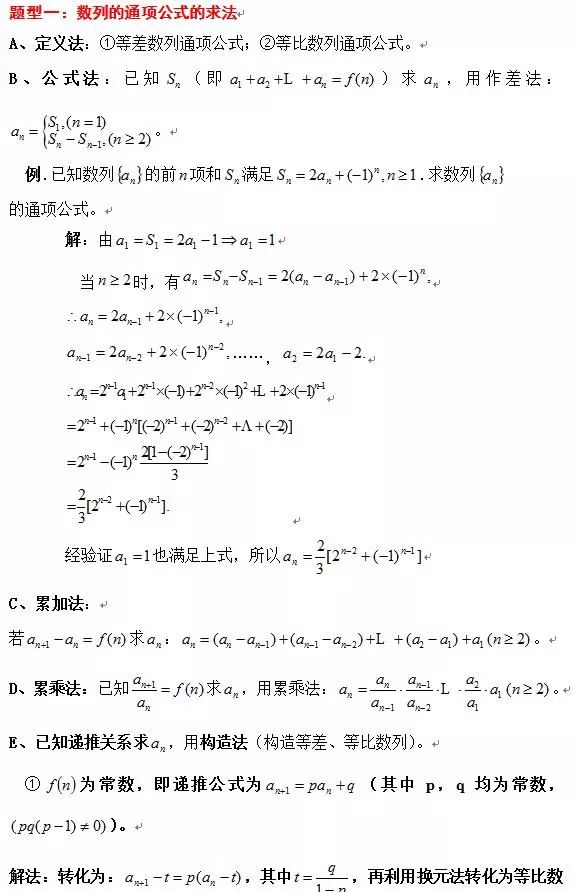 题型一：数列的通项公式的求法
A、定义法：①等差数列通项公式；②等比数列通项公式。
B、公式法：已知 Sₙ（即 a₁+a₂+L +aₙ = f(n)）求 aₙ，用作差法：
aₙ = {S₁,(n=1)
Sₙ − Sₙ₋₁,(n≥2)。
例.已知数列{aₙ}的前n项和Sₙ满足Sₙ = 2aₙ + (−1)ⁿ, n≥1.求数列{aₙ}
的通项公式。
解：由a₁ = S₁ = 2a₁ −1⇒a₁ =1
当n≥2时，有aₙ =Sₙ−Sₙ₋₁ = 2(aₙ − aₙ₋₁)+2×(−1)ⁿ,
∴aₙ = 2aₙ₋₁ +2×(−1)ⁿ⁻¹,
aₙ₋₁ = 2aₙ₋₂ +2×(−1)ⁿ⁻²,……，a₂ = 2a₁ −2.
∴aₙ=2ⁿ⁻¹a₁+2ⁿ⁻¹×(−1)+2ⁿ⁻²×(−1)²+L+2×(−1)ⁿ⁻¹
=2ⁿ⁻¹+(−1)ⁿ[(−2)ⁿ⁻¹+(−2)ⁿ⁻²+Λ+(−2)]
=2ⁿ⁻¹−(−1)ⁿ 2[1−(−2)ⁿ⁻¹]/3
=2/3[2ⁿ⁻²+(−1)ⁿ⁻¹].
经验证a₁ =1也满足上式，所以aₙ = 2/3[2ⁿ⁻² + (−1)ⁿ⁻¹]
C、累加法：
若aₙ₊₁ − aₙ = f(n)求aₙ：aₙ = (aₙ − aₙ₋₁)+(aₙ₋₁ − aₙ₋₂)+L +(a₂ − a₁)+a₁(n≥2)。
D、累乘法：已知aₙ₊₁/aₙ = f(n)求aₙ，用累乘法：aₙ = aₙ/aₙ₋₁ · aₙ₋₁/aₙ₋₂ ·L · a₂/a₁ ·a₁(n≥2)。
E、已知递推关系求aₙ，用构造法（构造等差、等比数列）。
① f(n)为常数，即递推公式为aₙ₊₁ = paₙ + q（其中 p，q 均为常数，
(pq(p−1)≠0)）。
解法：转化为：aₙ₊₁ − t = p(aₙ − t)，其中t = q/1−p，再利用换元法转化为等比数